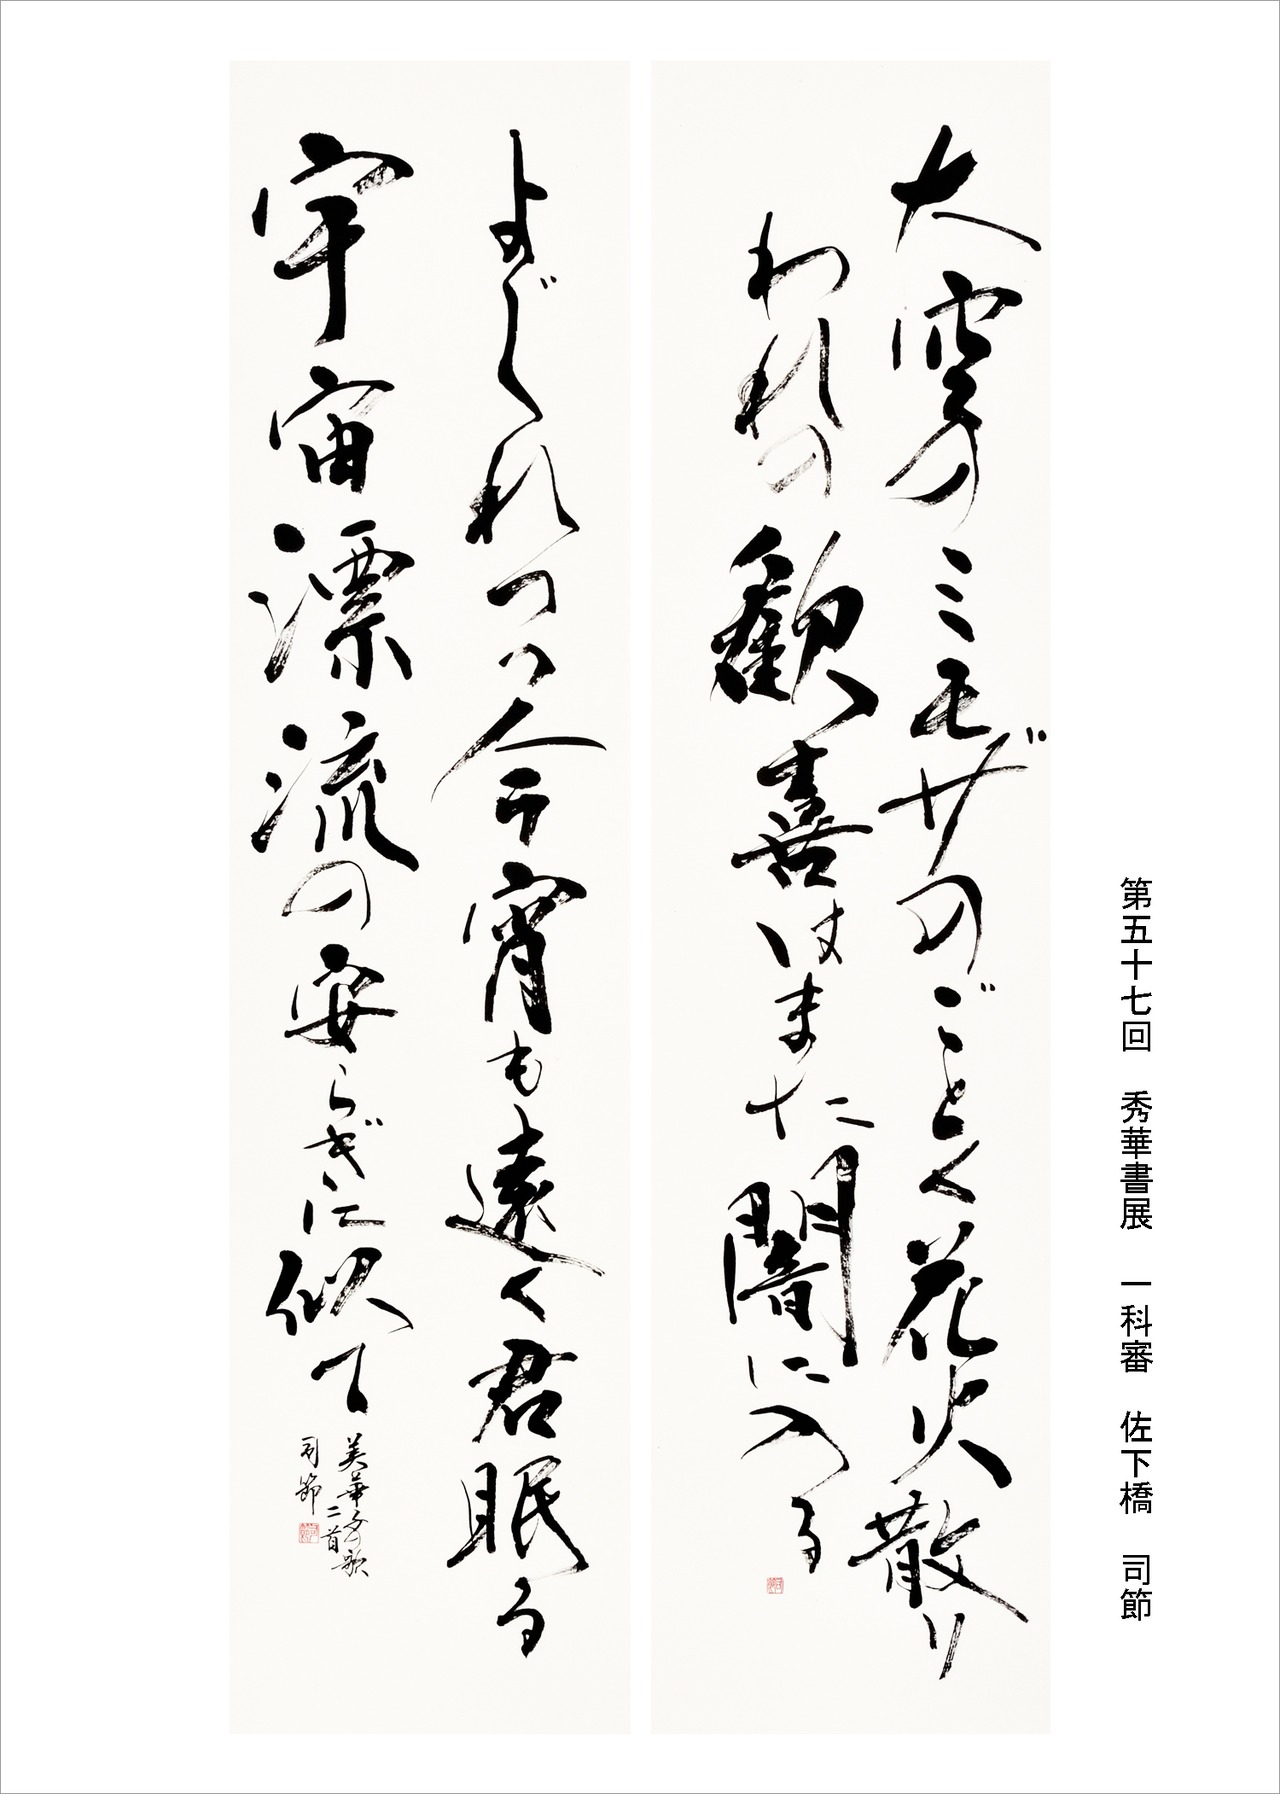 第五十七回　秀華書展　一科審　佐下橋　司節
大空のミモザのごとく花火散り
われの歓喜はまた闇に入る
つつ今宵も遠く君眠る
宇宙漂流の安らぎに似て
美華 の歌
二首
司節